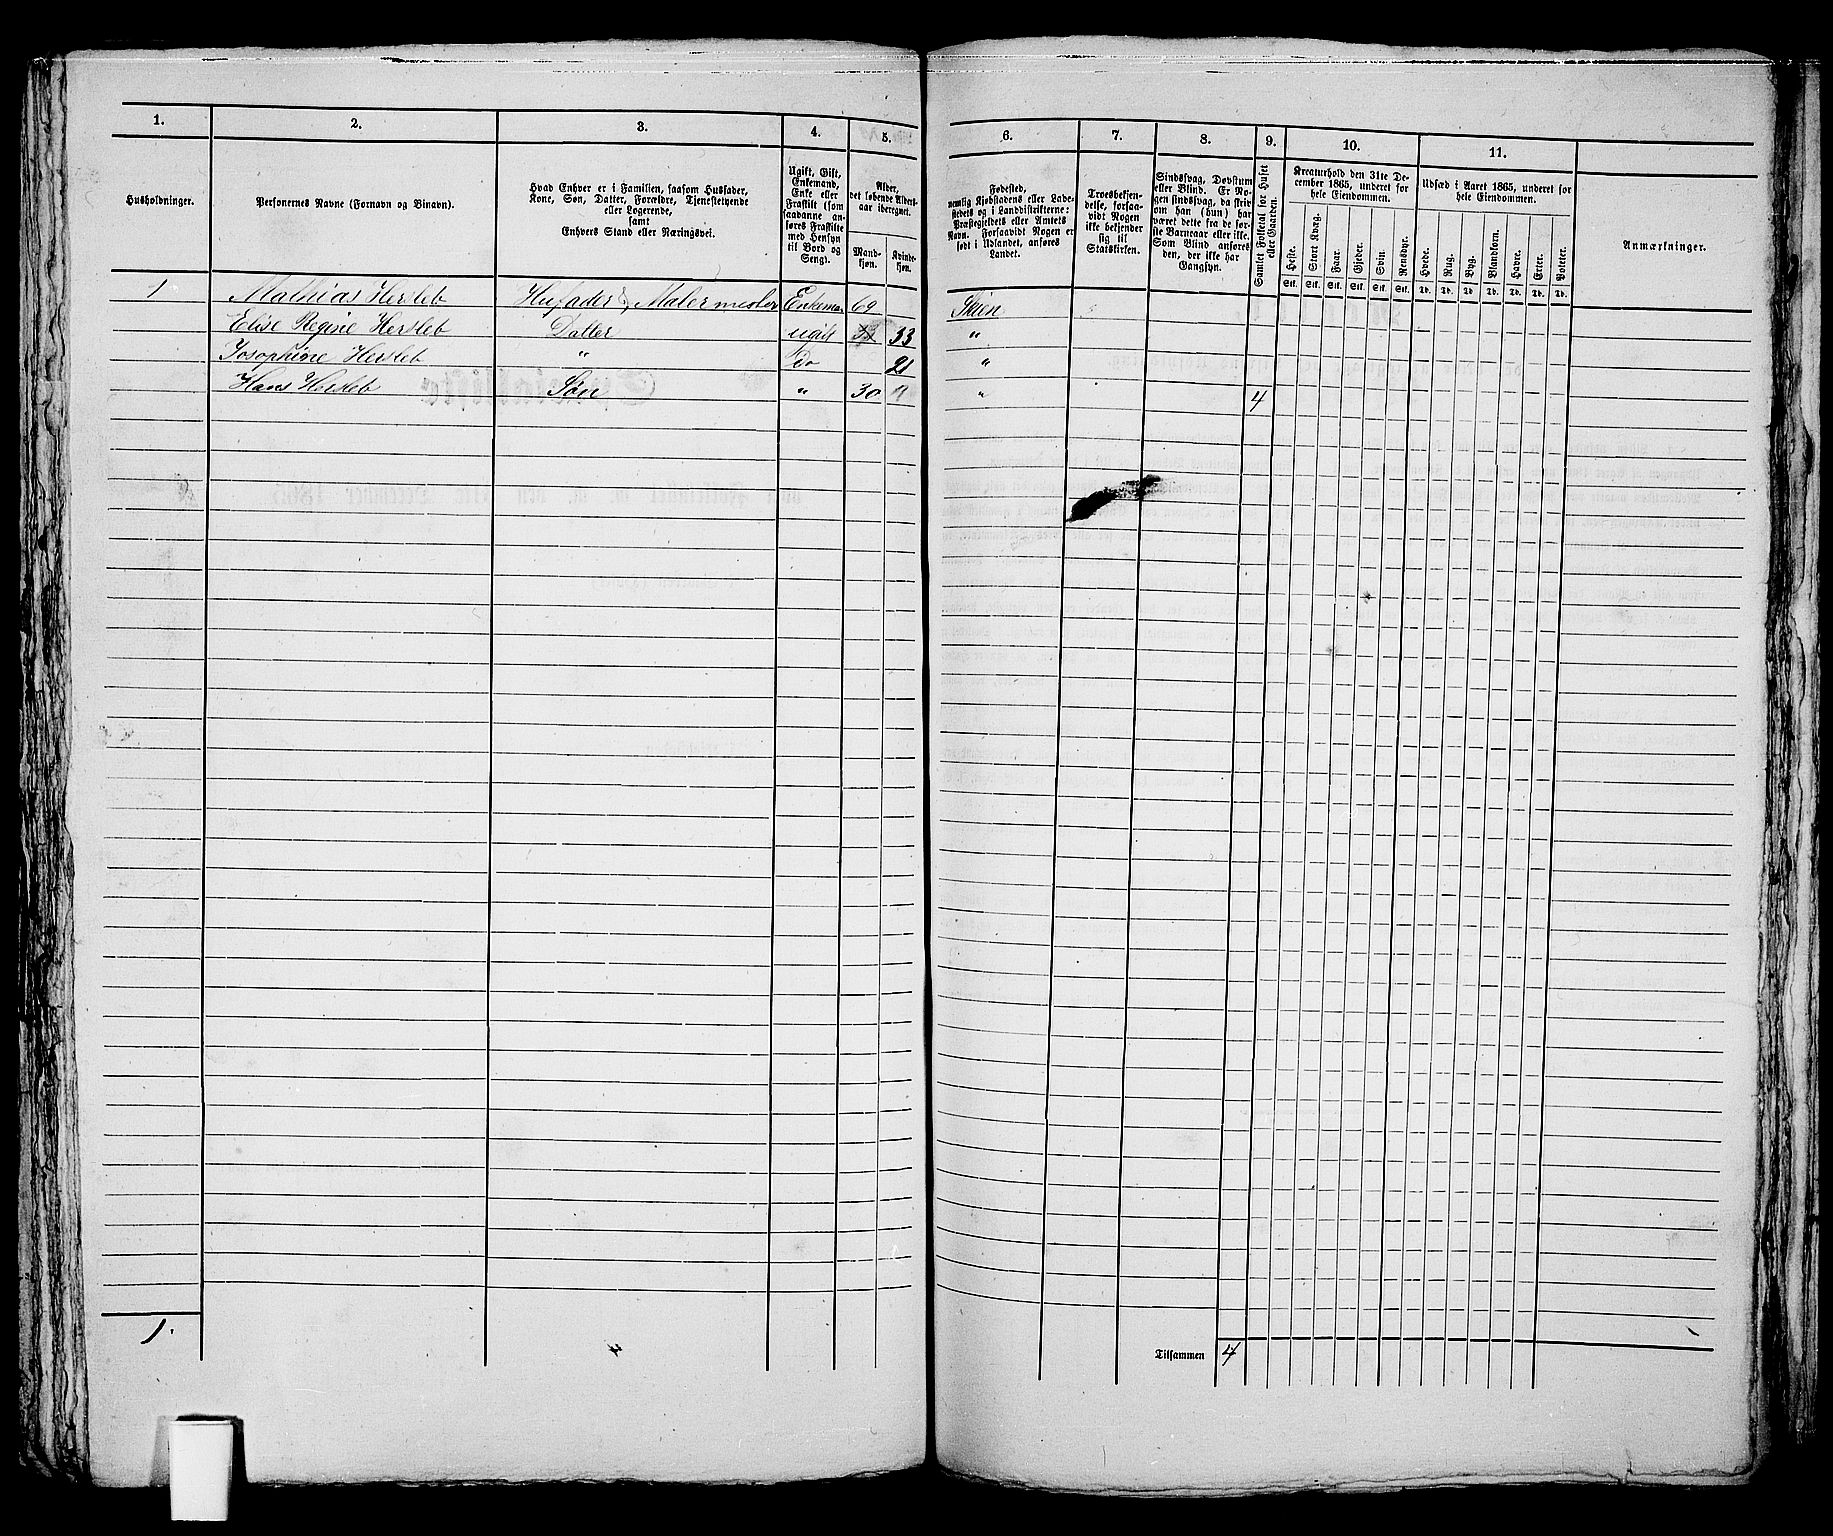 1. 2. 3. 4. 5. 6. 7. 8. 9. 10. 11.
Husholdninger.
Personernes Navne (Fornavn og Binavn).
Hvad Enhver er i Familien, saasom Husfader,
Kone, Søn, Datter, Forældre, Tjenestetyende
eller Logerende,
samt
Enhvers Stand eller Næringsvei.
Ugift, Gift,
Enkemand,
Enke eller
Fraskilt (som
saadanne an-
føres Fraskilte
med Hensyn
til Bord og
Seng).
Alder,
det løbende Alders-
aar iberegnet.
Mand-
kjøn.
Kvinde-
kjøn.
Fødested,
nemlig Kjøbstadens eller Lade-
stedets og i Landdistrikterne:
Præstegjeldets eller Amtets
Navn. Forsaavidt Nogen er
født i Udlandet, anføres
Landet.
Troesbekjen-
delse, forsaa-
vidt Nogen
ikke bekjender
sig til
Statskirken.
Sindssvag, Døvstum
eller Blind. Er No-
gen sindssvag, da skriv
om han (hun) har
været dette fra de før-
ste Barneaar eller ikke.
Som Blind anføres
den, der ikke har
Gangsyn.
Samlet Folketal for Huset
eller Gaarden.
Kreaturhold den 31te De-
cember 1865, underet for
hele Eiendommen.
Heste. Stort Kvæg. Faar. Gjeder. Svin. Rensdyr.
Stk. Stk. Stk. Stk. Stk. Stk.
Udsæd i Aaret 1865, underet for
hele Eiendommen.
Hvede. Rug. Byg. Blandkorn. Havre. Erter. Poteter.
Td. Td. Td. Td. Td. Td. Td.
Anmærkninger.
1 Mathias Hersleb Husfader, Malermester Enkema 69 Skien
Elise Regine Hersleb Datter ugift 33 "
Josephine Hersleb " Do 21 "
Hans Hersleb Søn " 30 " 4
1.
Tilsammen 4